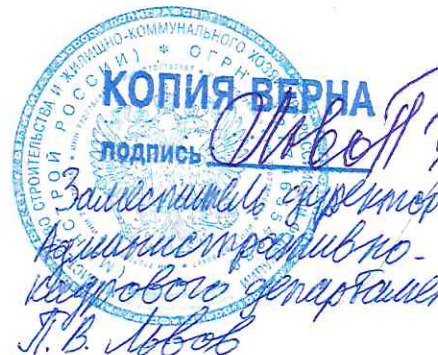 СТРОИТЕЛЬСТВА И ЖИЛИЩНО-КОММУНАЛЬНОГО
СТРОЙ РОССИИ) * ОГРН
КОПИЯ ВЕРНА
подпись
Заместитель директор
Административно-
кадрового департамен
П.В. Львов